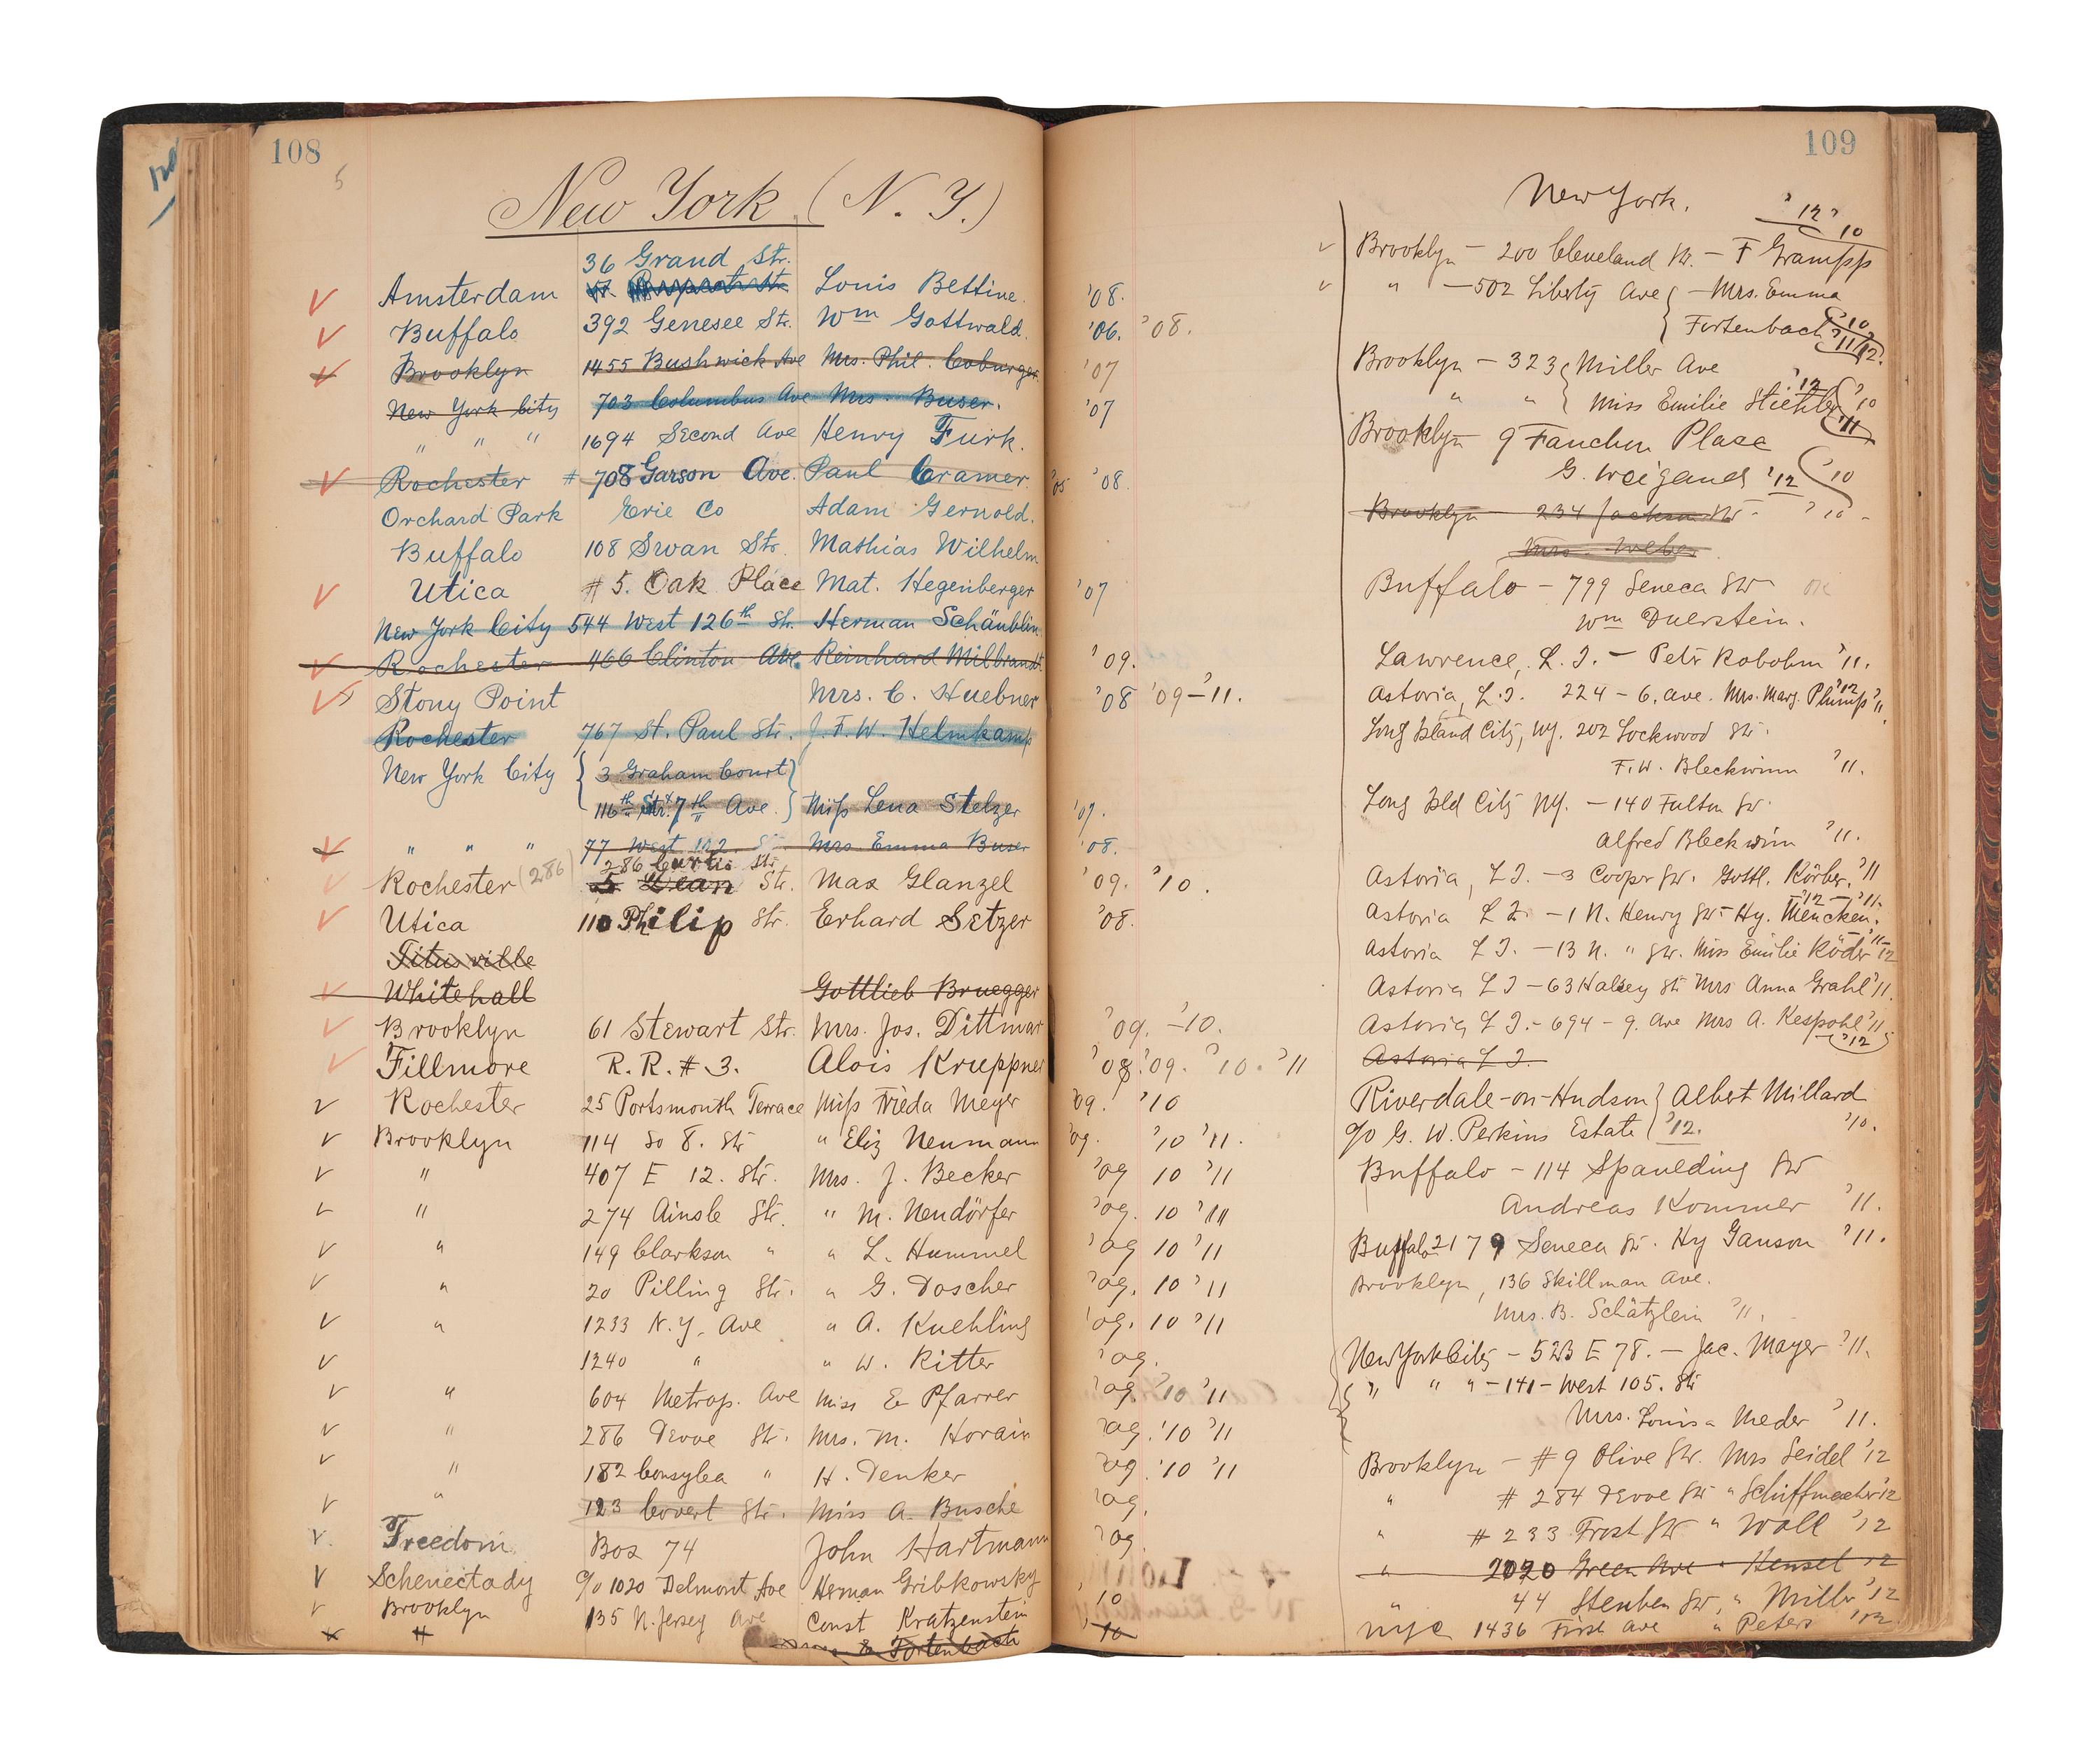 108
5
New York (N. Y.)
36 Grand Str.
Amsterdam Louis Bettine. '08.
Buffalo 392 Genesee Str. Wm Gottwald. '06. '08.
Brooklyn 1455 Bushwick Ave Mrs. Phil. Coburger. '07
New York City 703 Columbus Ave Mrs. Buser. '07
" " " 1694 Second Ave Henry Furk.
Rochester # 708 Garson Ave. Paul Cramer. '05 '08.
Orchard Park Erie Co Adam Gernold.
Buffalo 108 Swan Str. Mathias Wilhelm
Utica # 5. Oak Place Mat. Hegenberger '07
New York City 544 West 126th Str. Herman Schäublin
Rochester 466 Clinton Ave. Reinhard Milbrandt. '09.
Stony Point Mrs. C. Huebner '08 '09-'11.
Rochester 767 St. Paul Str. J. F. W. Helmkamp
New York City { 3 Graham Court }
116th Str. & 7th Ave. } Miss Lena Stelzer '07.
" " " 77 West 102. St Mrs Emma Buser '08.
286 Curtis Str
Rochester (286) 5 Dean Str. Max Glanzel '09. '10.
Utica 110 Philip Str. Erhard Setzer '08.
Titusville
Whitehall Gottlieb Bruegger
Brooklyn 61 Stewart Str. Mrs. Jos. Dittmar '09. -'10.
Fillmore R. R. # 3. Alois Kruppner '08. '09. '10. '11
Rochester 25 Portsmouth Terrace Miss Frieda Meyer '09. '10
Brooklyn 114 So 8. Str " Eliz Neumann '09. '10 '11.
" 407 E 12. Str. Mrs. J. Becker '09 10 '11
" 274 Ainsle Str. " M. Neudörfer '09. 10 '11
" 149 Clarkson " " L. Hummel '09 10 '11
" 20 Pilling Str. " G. Doscher '09. 10 '11
" 1233 N.Y. Ave " A. Kuehling '09. 10 '11
1240 " " W. Ritter '09.
" 604 Metrop. Ave Miss E Pfarrer '09. '10 '11
" 286 Devoe Str. Mrs. M. Horain '09. '10 '11
" 182 Consylea " H. Denker '09. '10 '11
" 123 Covert Str. Miss A. Busche '09.
Freedom Box 74 John Hartmann '09.
Schenectady c/o 1020 Delmont Ave Herman Gribkowsky '10
Brooklyn 135 N. Jersey Ave Const Kratzenstein
" Fortenbach '10
109
New York.
'12' '10
Brooklyn - 200 Cleveland Str. - F Grampp
" - 502 Liberty Ave { - Mrs. Emma
Fortenbach '10 '11 '12.
Brooklyn - 323 { Miller Ave
" " { Miss Emilie Stiehler '12 '10 '11
Brooklyn 9 Fanchon Place
G. Weigand '12 '10
Brooklyn 234 Jackson Str - '10 -
Mrs. Weber
Buffalo - 799 Seneca Str OK
Wm Duerstein.
Lawrence, L. I. - Petr Robohm '11.
Astoria, L.I. 224 - 6. Ave. Mrs. Marg. Plump '12 '11.
Long Island City, NY. 202 Lockwood Str.
F. W. Bleckwinn '11.
Long Isld City NY. - 140 Fulton Str.
Alfred Bleckwinn '11.
Astoria, L I. - 3 Cooper Str. Gottl. Körber. '11
Astoria L I. - 1 N. Henry Str - Hy. Mencken. '12 - '11.
Astoria L I. - 13 N. " Str. Miss Emilie Röder '11 - '12
Astoria L I - 63 Halsey Str Mrs Anna Grahl '11.
Astoria L I. - 694 - 9. Ave Mrs A. Respohl '11
'12
Astoria L I.
Riverdale-on-Hudson } Albert Millard
c/o G. W. Perkins Estate { '12. '10.
Buffalo - 114 Spaulding Str
Andreas Kommer '11.
Buffalo 2179 Seneca Str. Hy Ganson '11.
Brooklyn, 136 Skillman Ave.
Mrs. B. Schätzlein '11.
New York City - 523 E 78. - Jac. Mayer '11.
" " " - 141 - West 105. Str
Mrs. Louisa Meder '11.
Brooklyn - # 9 Olive Str. Mrs Seidel '12
" # 284 Devoe Str " Schiffmacher '12
" # 233 Frost Str " Woll '12
" 2020 Green Ave " Hensel '12
" 44 Steuben Str, " Miller '12
NYC 1436 First Ave " Peters '12